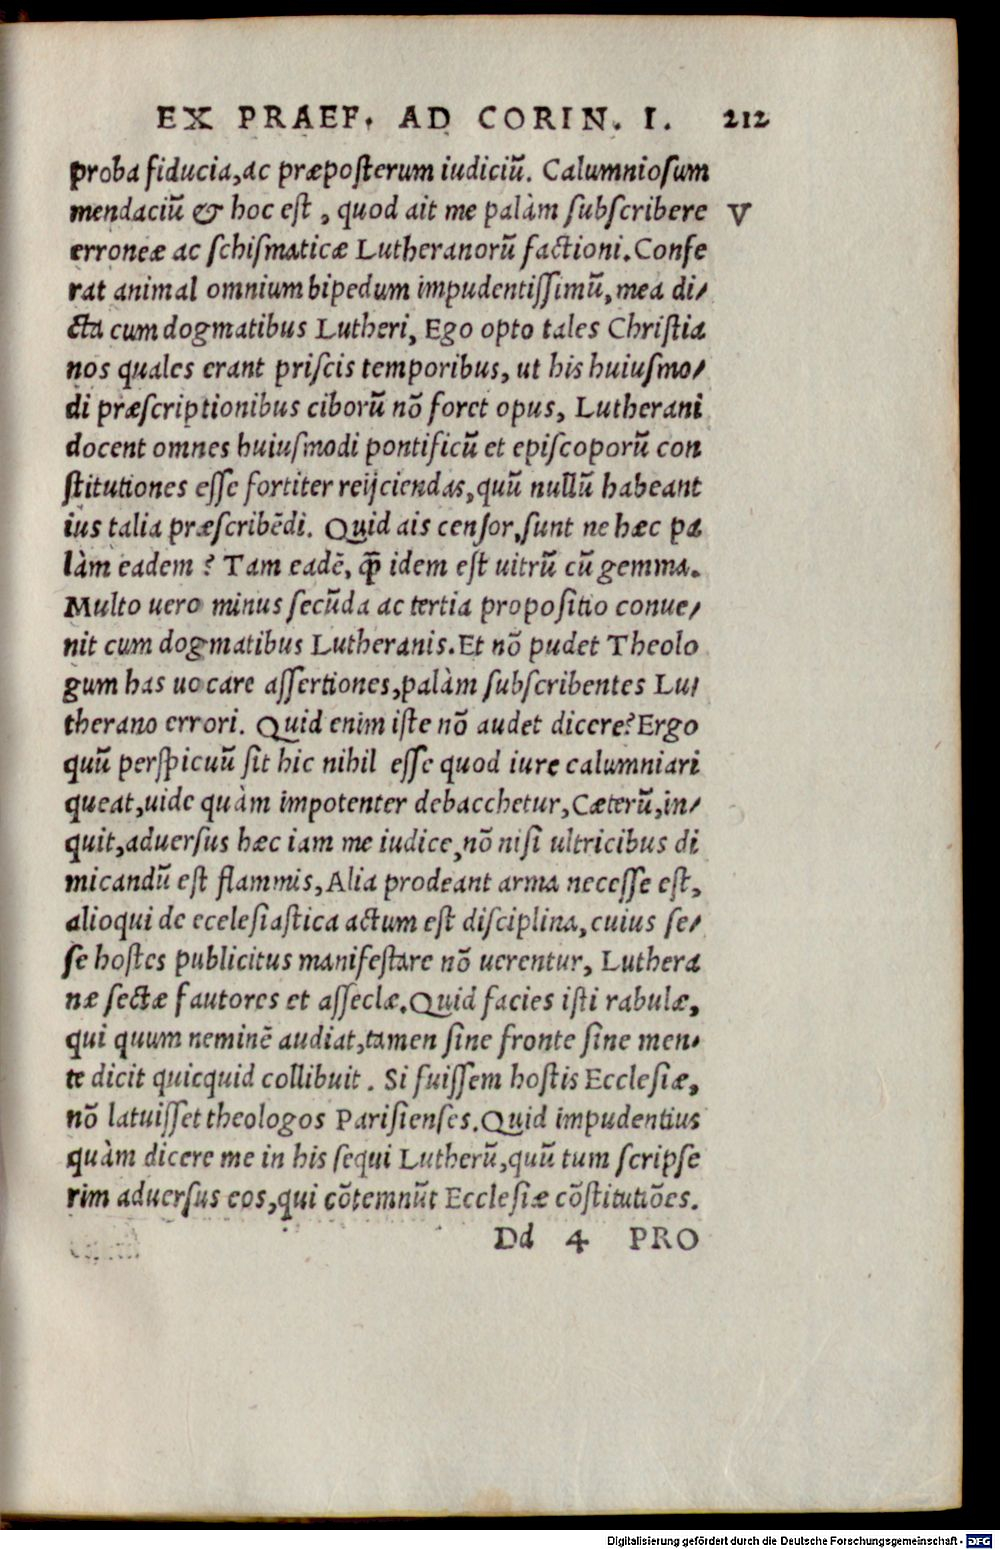 EX PRAEF. AD CORIN. I. 212
proba fiducia, ac præposterum iudiciũ. Calumniosum
mendaciũ & hoc est, quod ait me palàm subscribere V
erroneæ ac schismaticæ Lutheranorũ factioni. Confe
rat animal omnium bipedum impudentissimũ, mea di/
cta cum dogmatibus Lutheri, Ego opto tales Christia
nos quales erant priscis temporibus, ut his huiusmo/
di præscriptionibus ciborũ nõ foret opus, Lutherani
docent omnes huiusmodi pontificũ et episcoporũ con
stitutiones esse fortiter reijciendas, quũ nullũ habeant
ius talia præscribẽdi. Quid ais censor, sunt ne hæc pa
làm eadem? Tam eadẽ, q̃ idem est uitrũ cũ gemma.
Multo uero minus secũda ac tertia propositio conue/
nit cum dogmatibus Lutheranis. Et nõ pudet Theolo
gum has uocare assertiones, palàm subscribentes Lu/
therano errori. Quid enim iste nõ audet dicere? Ergo
quũ perspicuũ sit hic nihil esse quod iure calumniari
queat, uide quàm impotenter debacchetur, Cæterũ, in/
quit, aduersus hæc iam me iudice, nõ nisi ultricibus di
micandũ est flammis, Alia prodeant arma necesse est,
alioqui de ecclesiastica actum est disciplina, cuius se/
se hostes publicitus manifestare nõ uerentur, Luthera
næ sectæ fautores et asseclæ. Quid facies isti rabulæ,
qui quum neminẽ audiat, tamen sine fronte sine men/
te dicit quicquid collibuit. Si fuissem hostis Ecclesiæ,
nõ latuisset theologos Parisienses. Quid impudentius
quàm dicere me in his sequi Lutherũ, quũ tum scripse
rim aduersus eos, qui cõtemnũt Ecclesiæ cõstitutiões.
Dd 4 PRO
Digitalisierung gefördert durch die Deutsche Forschungsgemeinschaft - DFG